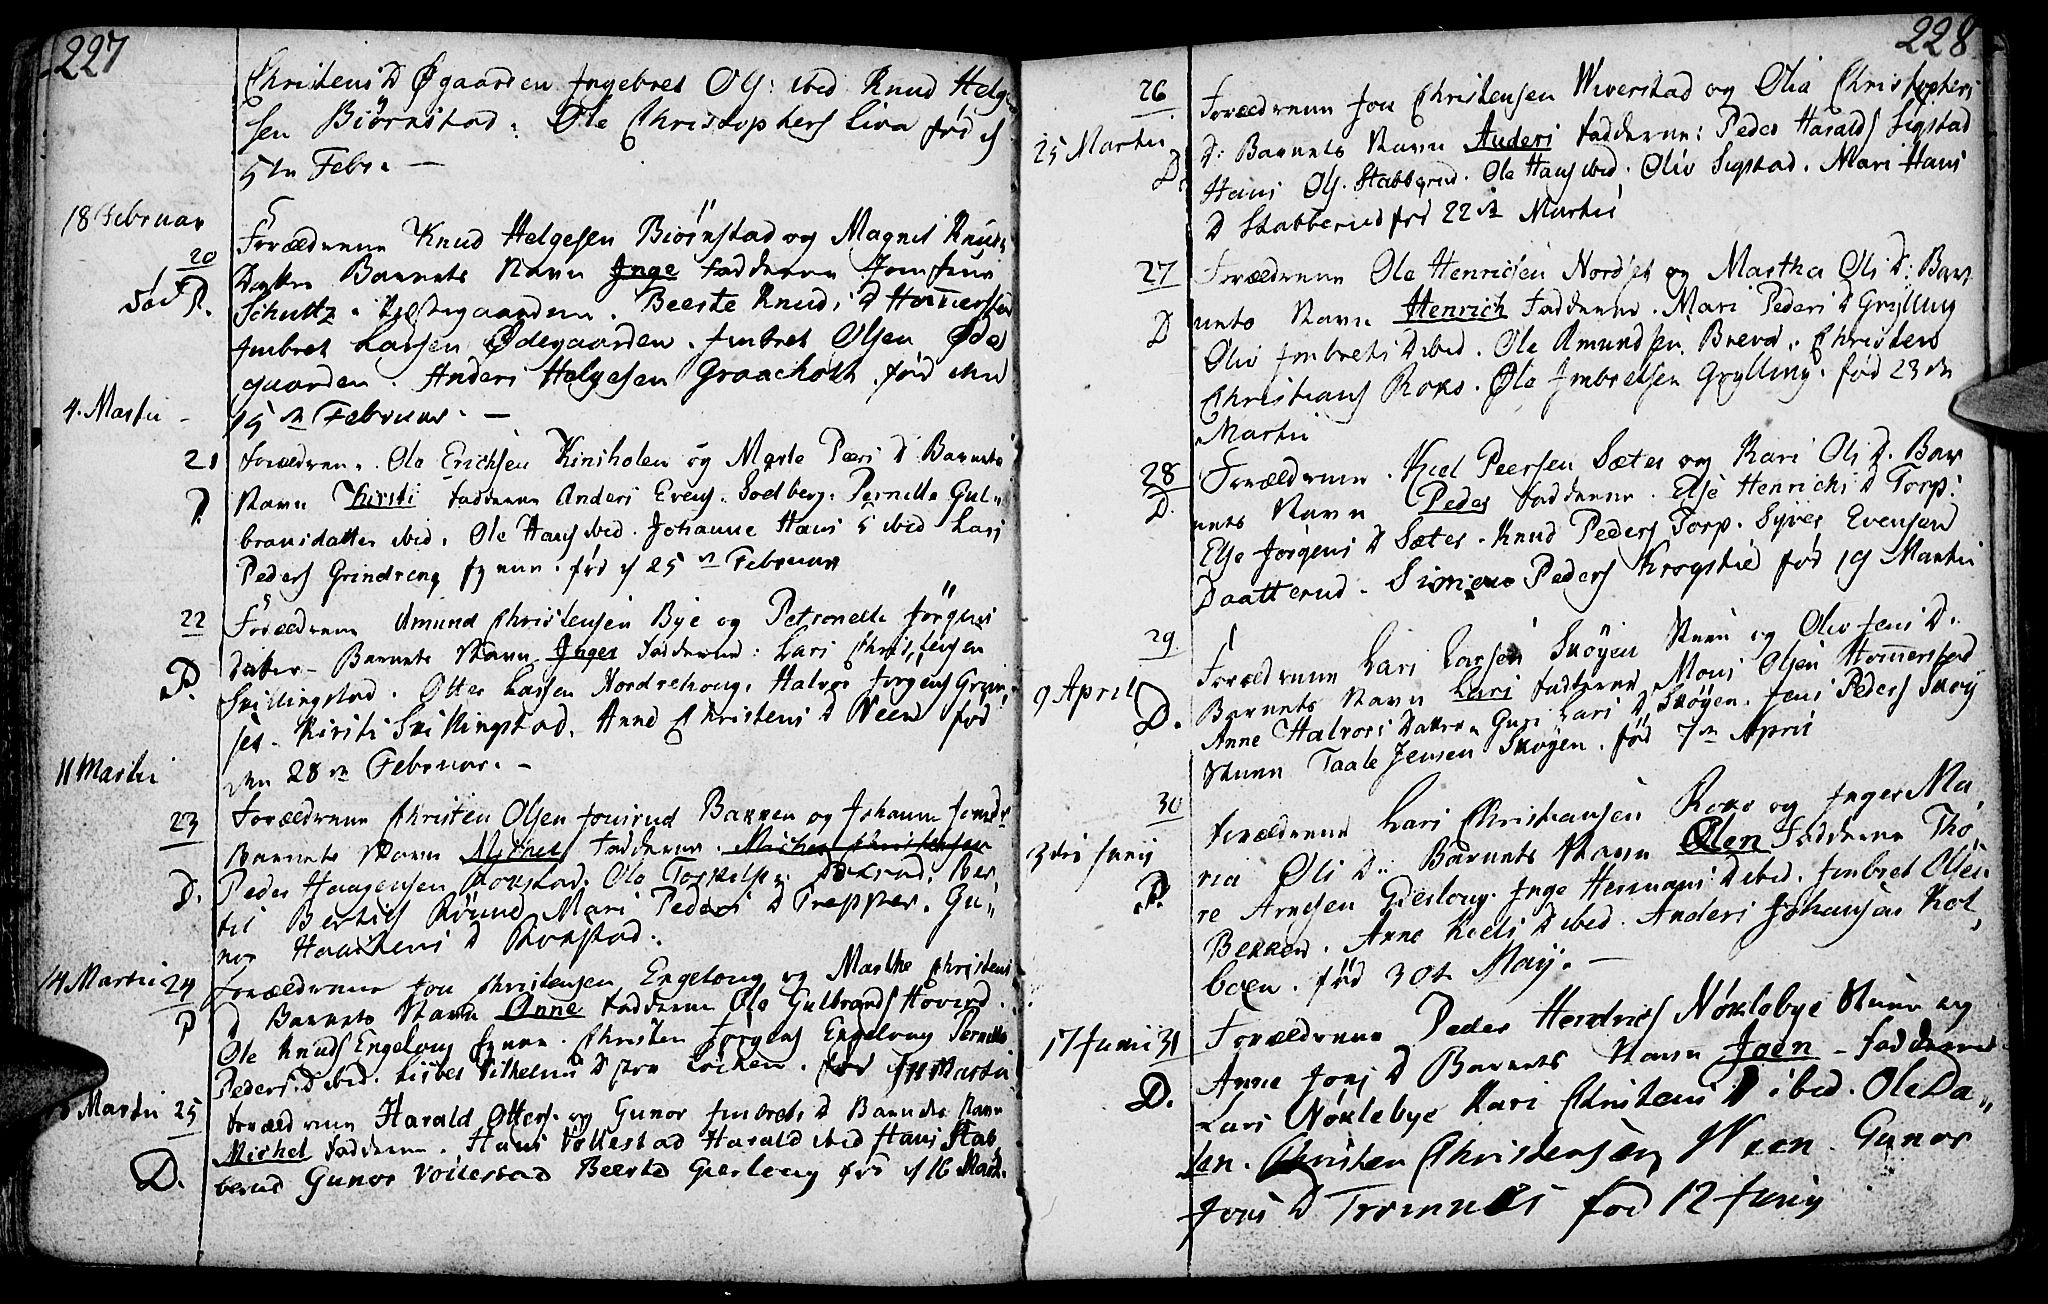 227
Christens D Øgaarden Ingebret Ols: ibid Knud Helge
sen Biørnstad. Ole Christophers Lira fød d
5te Febr. —
18 Februar
20
Forældrene Knud Helgesen Biørnstad og Magnil Knuds
Datter Barnets Navn Inge Fadderne Jomfrue
Schultz i Præstegaarden. Beerte Knuds D Hommerstad
Imbret Larsen Ødegaarden. Imbret Olsen Øde
gaarden. Anders Helgesen Graacholt. fød den
15de Februar. —
4. Martii -
21
D
Forældrene. Ole Erichsen Kinsholen og Marte Peers D Barnets
Navn Kirsti Fadderne Anders Evens. Sodberg. Pernille Gul-
bransdatter ibid. Ole Hans ibid. Johanne Hans D ibid Lars
Peders Grindreng. fød d 25de Februar
22
D.
Forældrene Amund Christensen Bye og Petronelle Jörgens
datter - Barnets Navn Inger Fadderne: Lars Christensen
Skillingstad. Otter Larsen Nordrehoug. Halvor Jorgens Grim-
set. Kirsti Skillingstad. Anne Christens D Neen fød
den 28de Februar. -
11 Martii
23
D.
Forældrene Christen Olsen Jonsrud Bakken og Johanne Jons D
Barnets Navn Michel Fadderne. Michel Christensen
Peder Haagensen Rokstad. Ole Torkelsen. Ber
til Bertils Røund Mari Peders D Trepper. Gu-
nor Haachens D Rokstad.
14 Martii 24
D
Forældrene Jon Christensen Engeloug og Marthe Christens
D Barnets Navn Anne Fadderne Ole Gulbrands Hoverd.
Ole Knuds Engeloug. Christen Jørgens Engeloug Pernille
Peders D ibid. Lisbet Vilhelms D fra Löcken. fød Martii
Martii 25
D.
Forældrene Harald Otters. og Gunor Imbrets D Barnets Navn
Michel Fadderne. Hans Vollestad Harald ibid Hans Stab
berud Gunor Vollestad Beerte Gierloug fød d 16 Marti.
228
26
25 Martii
D.
Forældrene Jon Christensen Wiverstad og Olia Christophers
D: Barnets Navn Anders Fadderne: Peder Haralds Sigstad
Hans Ols. Stabberud. Ole Hans ibid. Oliv Sigstad. Mari Hans
D Stabberud fød 22de Martii
27
D
Forældrene Ole Henricsen Nordset og Martha Ols D: Bar
nets Navn Henrich Fadderne. Mari Peders D Grylling
Oliv Imbrets D ibid. Ole Amundsen. Brevad. Christen
Christians Roko. Ole Imbretsen Grylling. fød 23de
Martii
28
D.
Forældrene. Kiel Peersen Sæter og Kari Ols D. Bar
nets Navn Peder Fadderne. Else Henrichs D Torp.
Else Jörgens D Sæter. Knud Peders Torp. Syver Evensen
Daatterud. Simen Peders Krogstie fød 19 Martii
29
9 April
D.
Forældrene Lars Larsen Skøyen Nuen og Oliv Jens D.
Barnets Navn Lars Fadderne Mons Olsen Hommerstad
Anne Halvors Datter. Guri Lars D Skøyen. Jens Peders Skøy
Nuen Taale Jensen Skøyen. fød 7de April
30
3die Junij
D.
Forældrene Lars Christiansen Roko og Inger Ma-
ria Ols D. Barnets Navn Olen Fadderne Tho-
re Arnesen Gierloug. Inge Hermans D ibid. Imbret Olsen
Bekken. Anne Kiels D ibid. Anders Johansen Kol-
boen. fød 30t Maij. —
17 Junii 31
D.
Forældrene Peder Hendrics Nøklebye Nuen og
Anne Jons D Barnets Navn Joen - Fadderne
Lars Nøklebye Kari Christens D ibid. Ole Da-
len. Christen Christensen Neen. Gunor
Jons D Tromnes fød 12 Junij